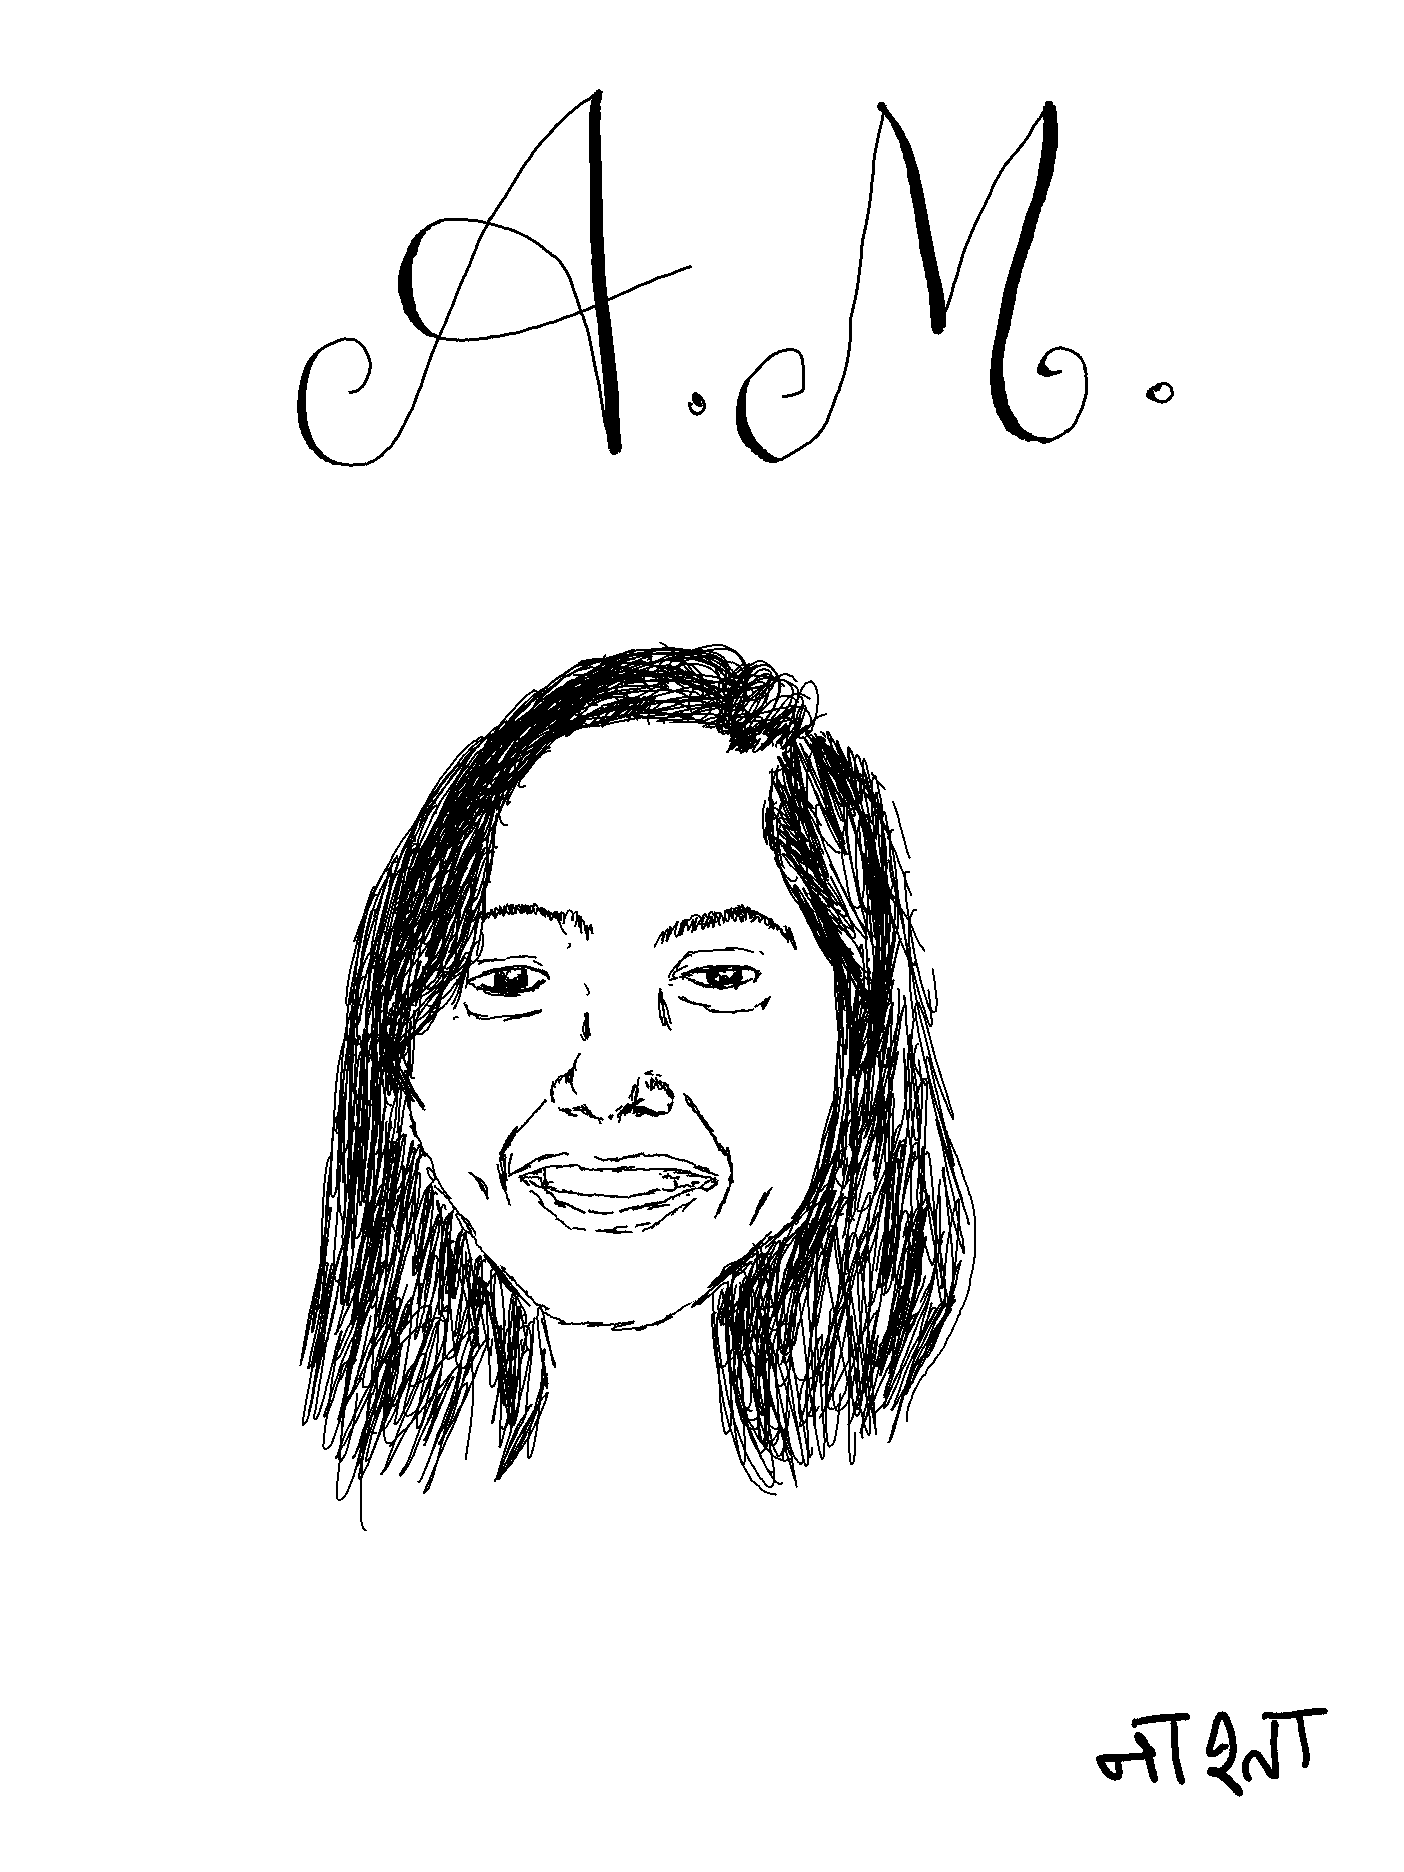 A. M.
नाश्ता